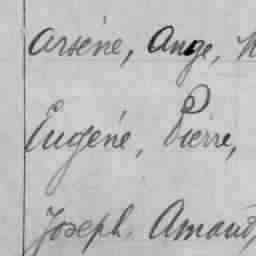 Arsène, Ange,
Eugène, Pierre,
Joseph. Amand,